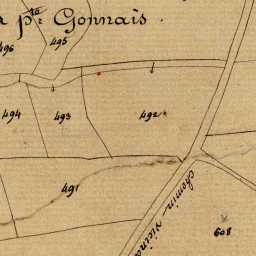 a pte Gonnais.
496
495
494
493
492
491
Chemin Vicina
608